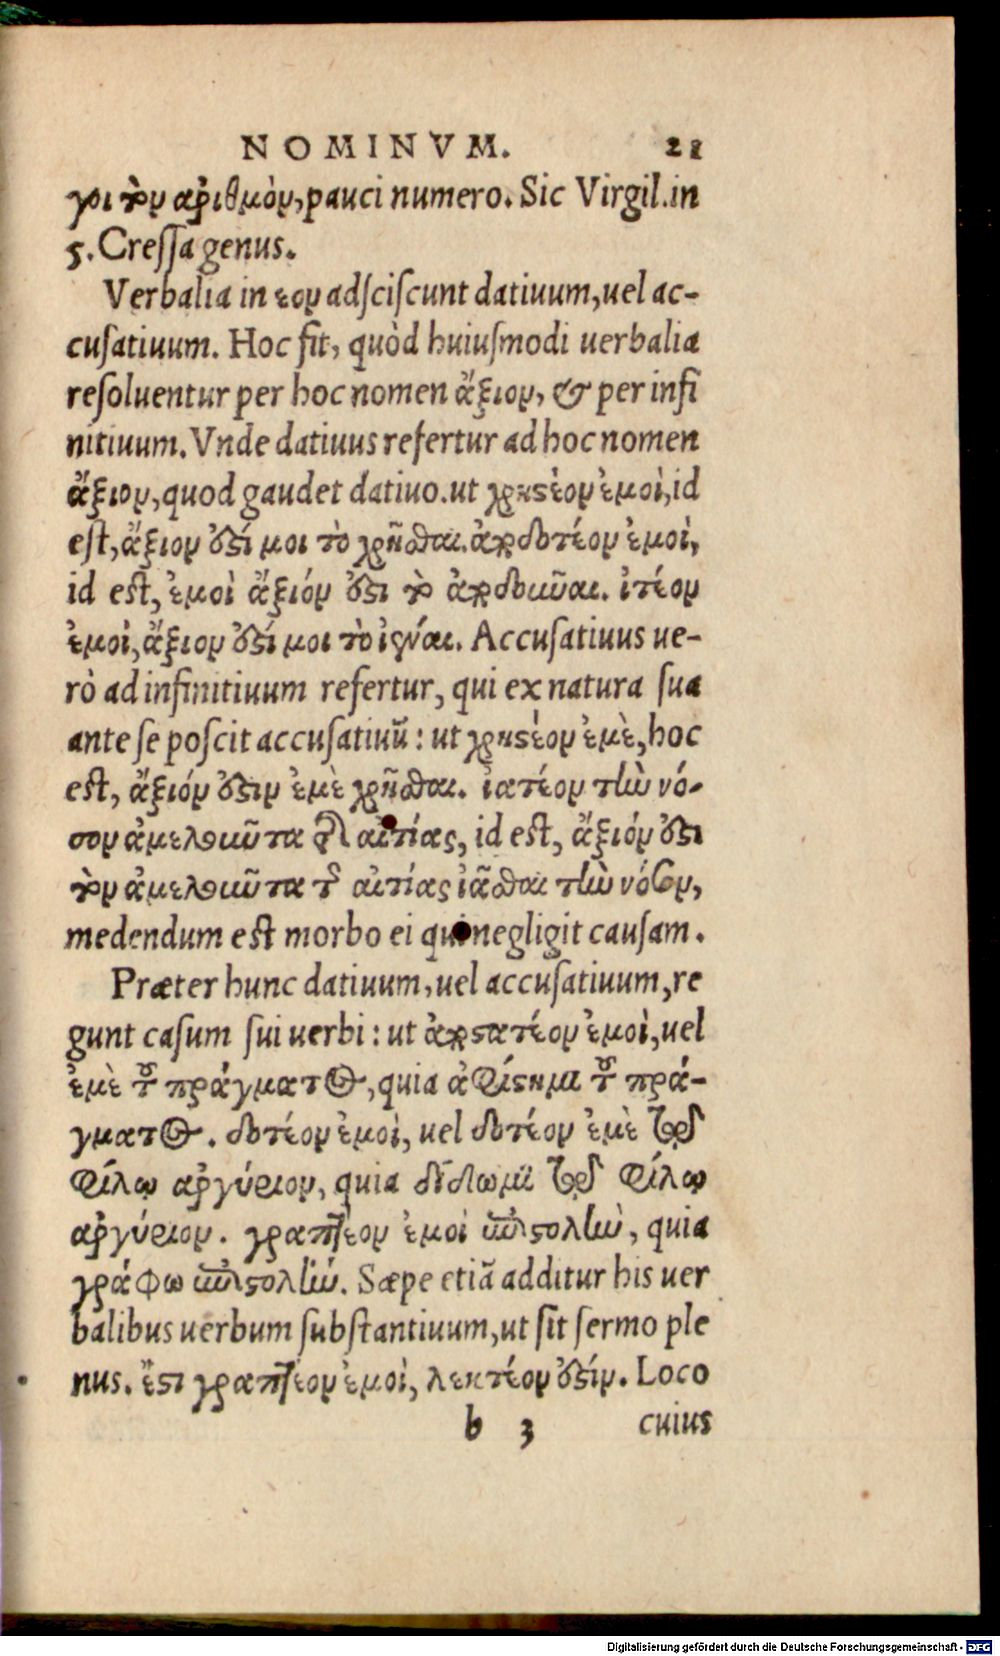 NOMINVM. 21
γοι τὸν αριθμὸν, pauci numero. Sic Virgil. in
5. Cressa genus.
Verbalia in εον adsciscunt datiuum, uel ac-
cusatiuum. Hoc fit, quòd huiusmodi uerbalia
resoluentur per hoc nomen ἄξιον, & per infi
nitiuum. Vnde datiuus refertur ad hoc nomen
ἄξιον, quod gaudet datiuo. ut χρηστέον ἐμοὶ, id
est, ἄξιον ἐστί μοι τὸ χρῆσθαι. ἀποδοτέον ἐμοὶ,
id est, ἐμοὶ ἄξιόν ἐστι τὸ ἀποδοῦναι. ἰτέον
ἐμοὶ, ἄξιον ἐστί μοι τὸ ἰέναι. Accusatiuus ue-
rò ad infinitiuum refertur, qui ex natura sua
ante se poscit accusatiuū: ut χρηστέον ἐμὲ, hoc
est, ἄξιόν ἐστιν ἐμὲ χρῆσθαι. ἰατέον τὴν νό-
σον ἀμελοῦντα τῆς αἰτίας, id est, ἄξιόν ἐστι
τὸν ἀμελοῦντα τῆς αἰτίας ἰᾶσθαι τὴν νόσον,
medendum est morbo ei qui negligit causam.
Præter hunc datiuum, uel accusatiuum, re
gunt casum sui uerbi: ut ἀποστατέον ἐμοὶ, uel
ἐμὲ τοῦ πράγματος, quia ἀφίστημι τοῦ πρά-
γματος. δοτέον ἐμοὶ, uel δοτέον ἐμὲ τῷ
φίλῳ αργύριον, quia δίδωμι τῷ φίλῳ
αργύριον. γραπτέον ἐμοὶ ἐπιστολὴν, quia
γράφω ἐπιστολήν. Sæpe etiã additur his uer
balibus uerbum substantiuum, ut sit sermo ple
nus. ἔστι γραπτέον ἐμοὶ, λεκτέον ἐστίν. Loco
b 3 cuius
Digitalisierung gefördert durch die Deutsche Forschungsgemeinschaft - DFG